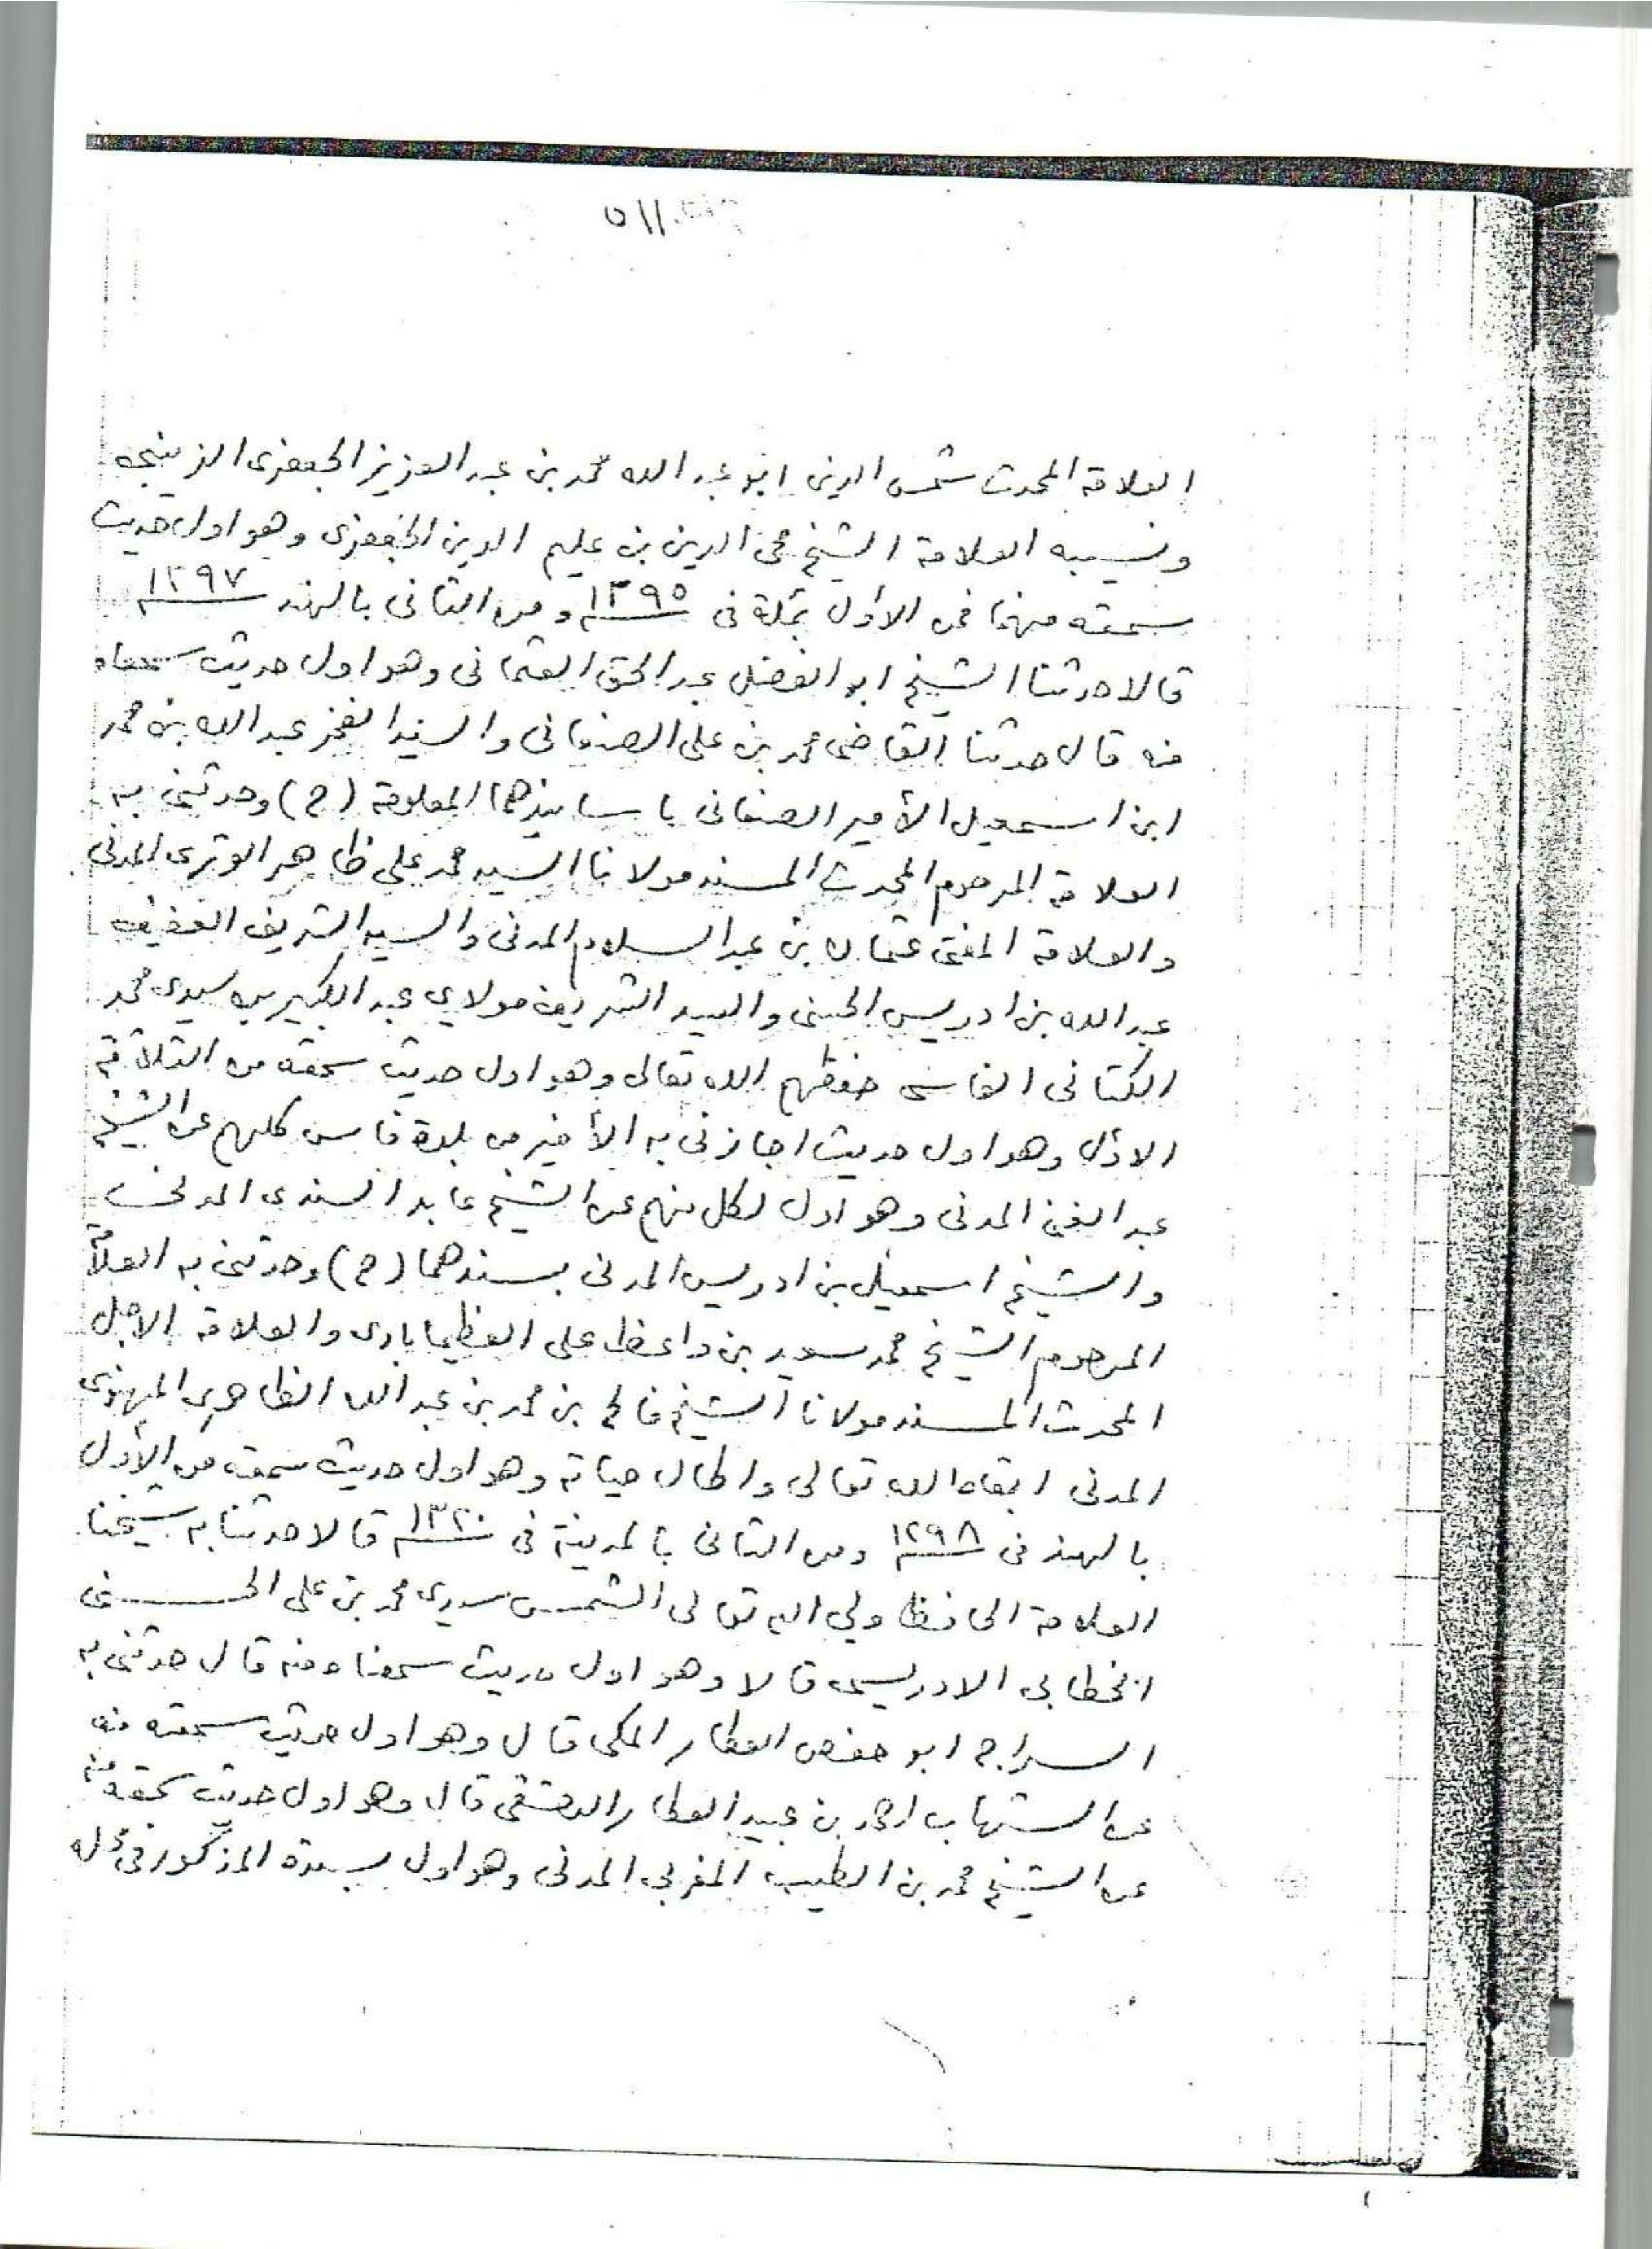 ٥١١
العلامة المحدث شمس الدين ابو عبد الله محمد بن عبد العزيز الجعفرى الزينبى
ونسيبه العلامة الشيخ محى الدين بن عليم الدين الجعفرى وهو اول حديث
سمعته منهما فمن الأول بمكة فى ١٢٩٥ ومن الثانى بالهند ١٢٩٧
قالا حدثنا الشيخ ابو الفضل عبد الحق العثمانى وهو اول حديث سمعناه
منه قال حدثنا القاضى محمد بن على الصنعانى والسيد الفخر عبد الله بن محمد
ابن اسمعيل الأمير الصنعانى باسانيدهما المعلومة (ح) وحدثنى به
العلامة المرحوم المحدث المسند مولانا السيد محمد على ظاهر الوترى المدنى
والعلامة المفتى عثمان بن عبد السلام المدنى والسيد الشريف العفيف
عبد الله بن ادريس الحسنى والسيد الشريف مولاي عبد الكبير بن سيدى محمد
الكتانى الفاسى حفظهم الله تعالى وهو اول حديث سمعته من الثلاثة
الاول وهو اول حديث اجازنى به الأخير من بلدة فاس كلهم عن الشيخ
عبد الغنى المدنى وهو اول لكل منهم عن الشيخ عابد السندى المدنى
والشيخ اسمعيل بن ادريس المدنى بسندهما (ح) وحدثنى به العلامة
المرحوم الشيخ محمد سعيد بن واعظ على العظيمابادى والعلامة الاجل
المحدث المسند مولانا الشيخ فالح بن محمد بن عبد الله الظاهرى المهنوى
المدنى ابقاه الله تعالى واطال حياته وهو اول حديث سمعته من الأول
بالهند فى ١٢٩٨ ومن الثانى بالمدينة فى ١٣٢٠ قالا حدثنا به شيخنا
العلامة الحافظ ولي الله تعالى الشمس سيدى محمد بن على الحسنى
الخطابى الادريسى قالا وهو اول حديث سمعناه منه قال حدثنى به
السراج ابو حفص العطار المكى قال وهو اول حديث سمعته منه
عن الشهاب احمد بن عبيد العطار الدمشقى قال وهو اول حديث سمعته منه
عن الشيخ محمد بن الطيب المغربى المدنى وهو اول بسنده المذكور فى محله